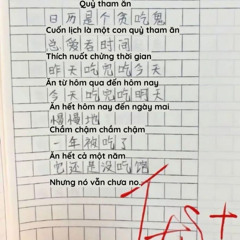 Quỷ tham ăn
日历是个贪吃鬼
Cuốn lịch là một con quỷ tham ăn
总爱吞时间
Thích nuốt chửng thời gian
昨天吃完吃今天
Ăn từ hôm qua đến hôm nay
今天吃完吃明天
Ăn hết hôm nay đến ngày mai
慢慢地
Chầm chậm chầm chậm
一年被吃了
Ăn hết cả một năm
它还是没吃饱
Nhưng nó vẫn chưa no.